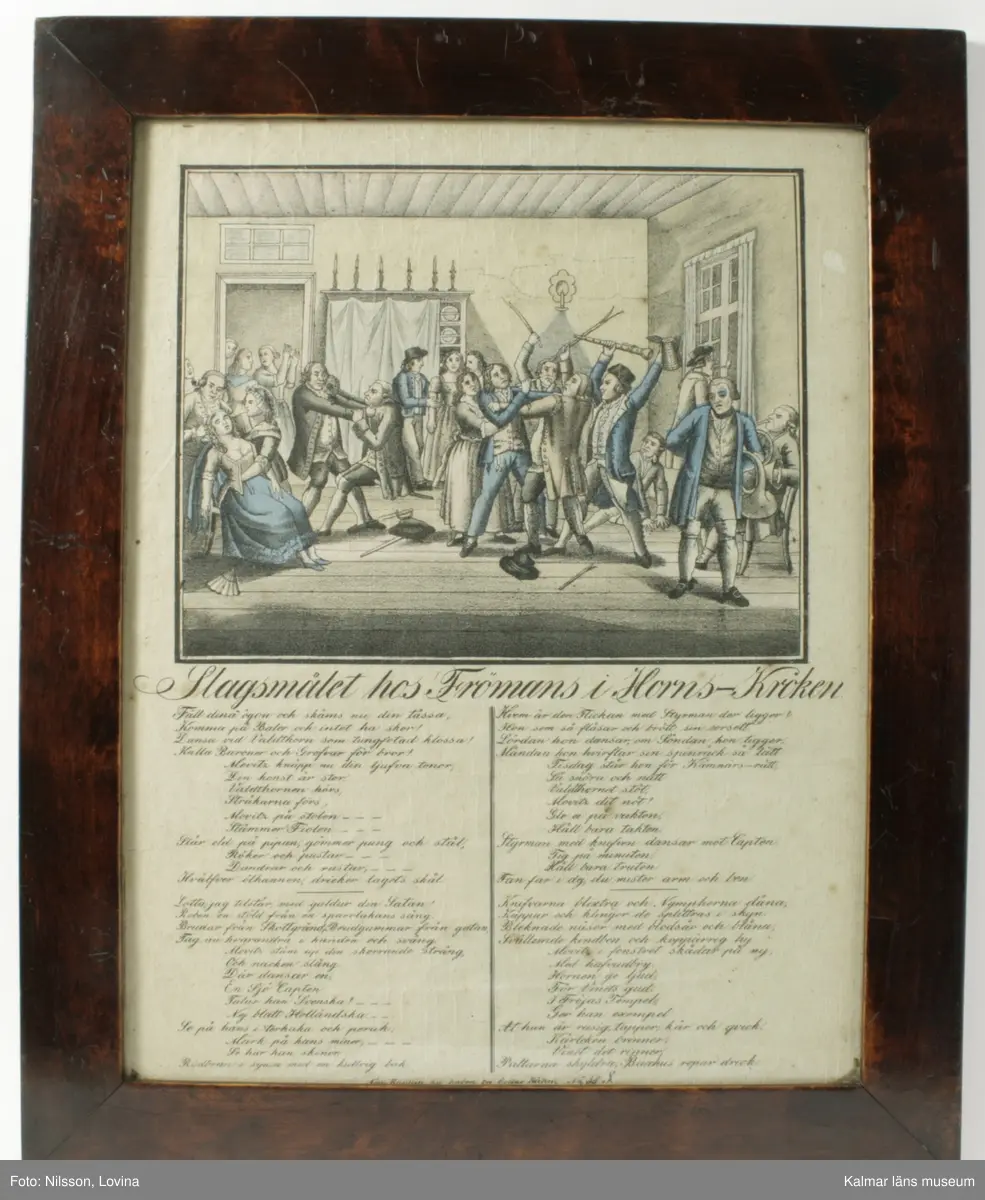 Slagsmålet hos Frömans i Horns-Kroken
Fäll dina ögon och skäms nu din tåssa,
Komma på Baler och intet ha skor!
Dansa vid Valdthorn som tungfotad klossa!
Kalla Baroner och Grefvar för bror!
Movitz knäpp nu din ljufva tenor,
Den konst är stor.
Valdthornen hörs,
Stråkarna förs,
Movitz på stolen – – –
Stämmer Fiolen – – –
Slår eld på pipan, gömmer pung och stål,
Röker och pustar – – –
Dundrar och rustar, – – –
Hvälfver ölkannen, dricker lagets skål.
Lotta, jag tilstår, med guldur din Satan!
Roben en stöld från en sparrlakans säng
Brunar från Skottgränd, Brudgummar från gatan,
Tag nu hvarandra i handra och sväng.
Movitz stäm up din skorrande sträng,
Och nacken släng
Där dansar en,
En Sjö Capten
Talar han Svenska! – – –
Nej blott Holländska – –
Se på hans stärkska och peruk,
Märk på hans miner, – – –
Se hur han skiner
Rödbrus i synen med en kullrig buk
Hvem är den Flickan med Styrman der ligger?
Hon som så flåsar och bröt sin corsett
Lördan hon dansar, om Söndan hon tigger,
Måndan hon hvirflar sin spinrock så lätt
Tisdag står hon för Kämnärs-rätt,
Så snöra och nätt
Valdthornet stöt,
Movitz dit nöt!
Gör a på vakten,
Håll bara takten
Styrman med knifven dansar mot Capten
Tig på minuten
Håll bara truten
Fan far i dig, du mister arm och ben
Knifvarna blixtra och Nympherna dåna,
Käppar och klingor de splittras i skyn
Bloknade näsor med blodsår och blåna,
Svällande kindben och kopparrög hy
Movitz i fönstret skådar på ny,
Med hufvudbry
Hornen ge ljud,
För Vinets gud
I Fröjas Tempel,
Ger han exempel
At han är rasig, tapper, kär och quick
Kärleken brinner,
Vinet det rinner,
Pallas an skyldra, Bacchus ropar drick
No 55
Foto: Nilsson, Lovina
Kalmar läns museum